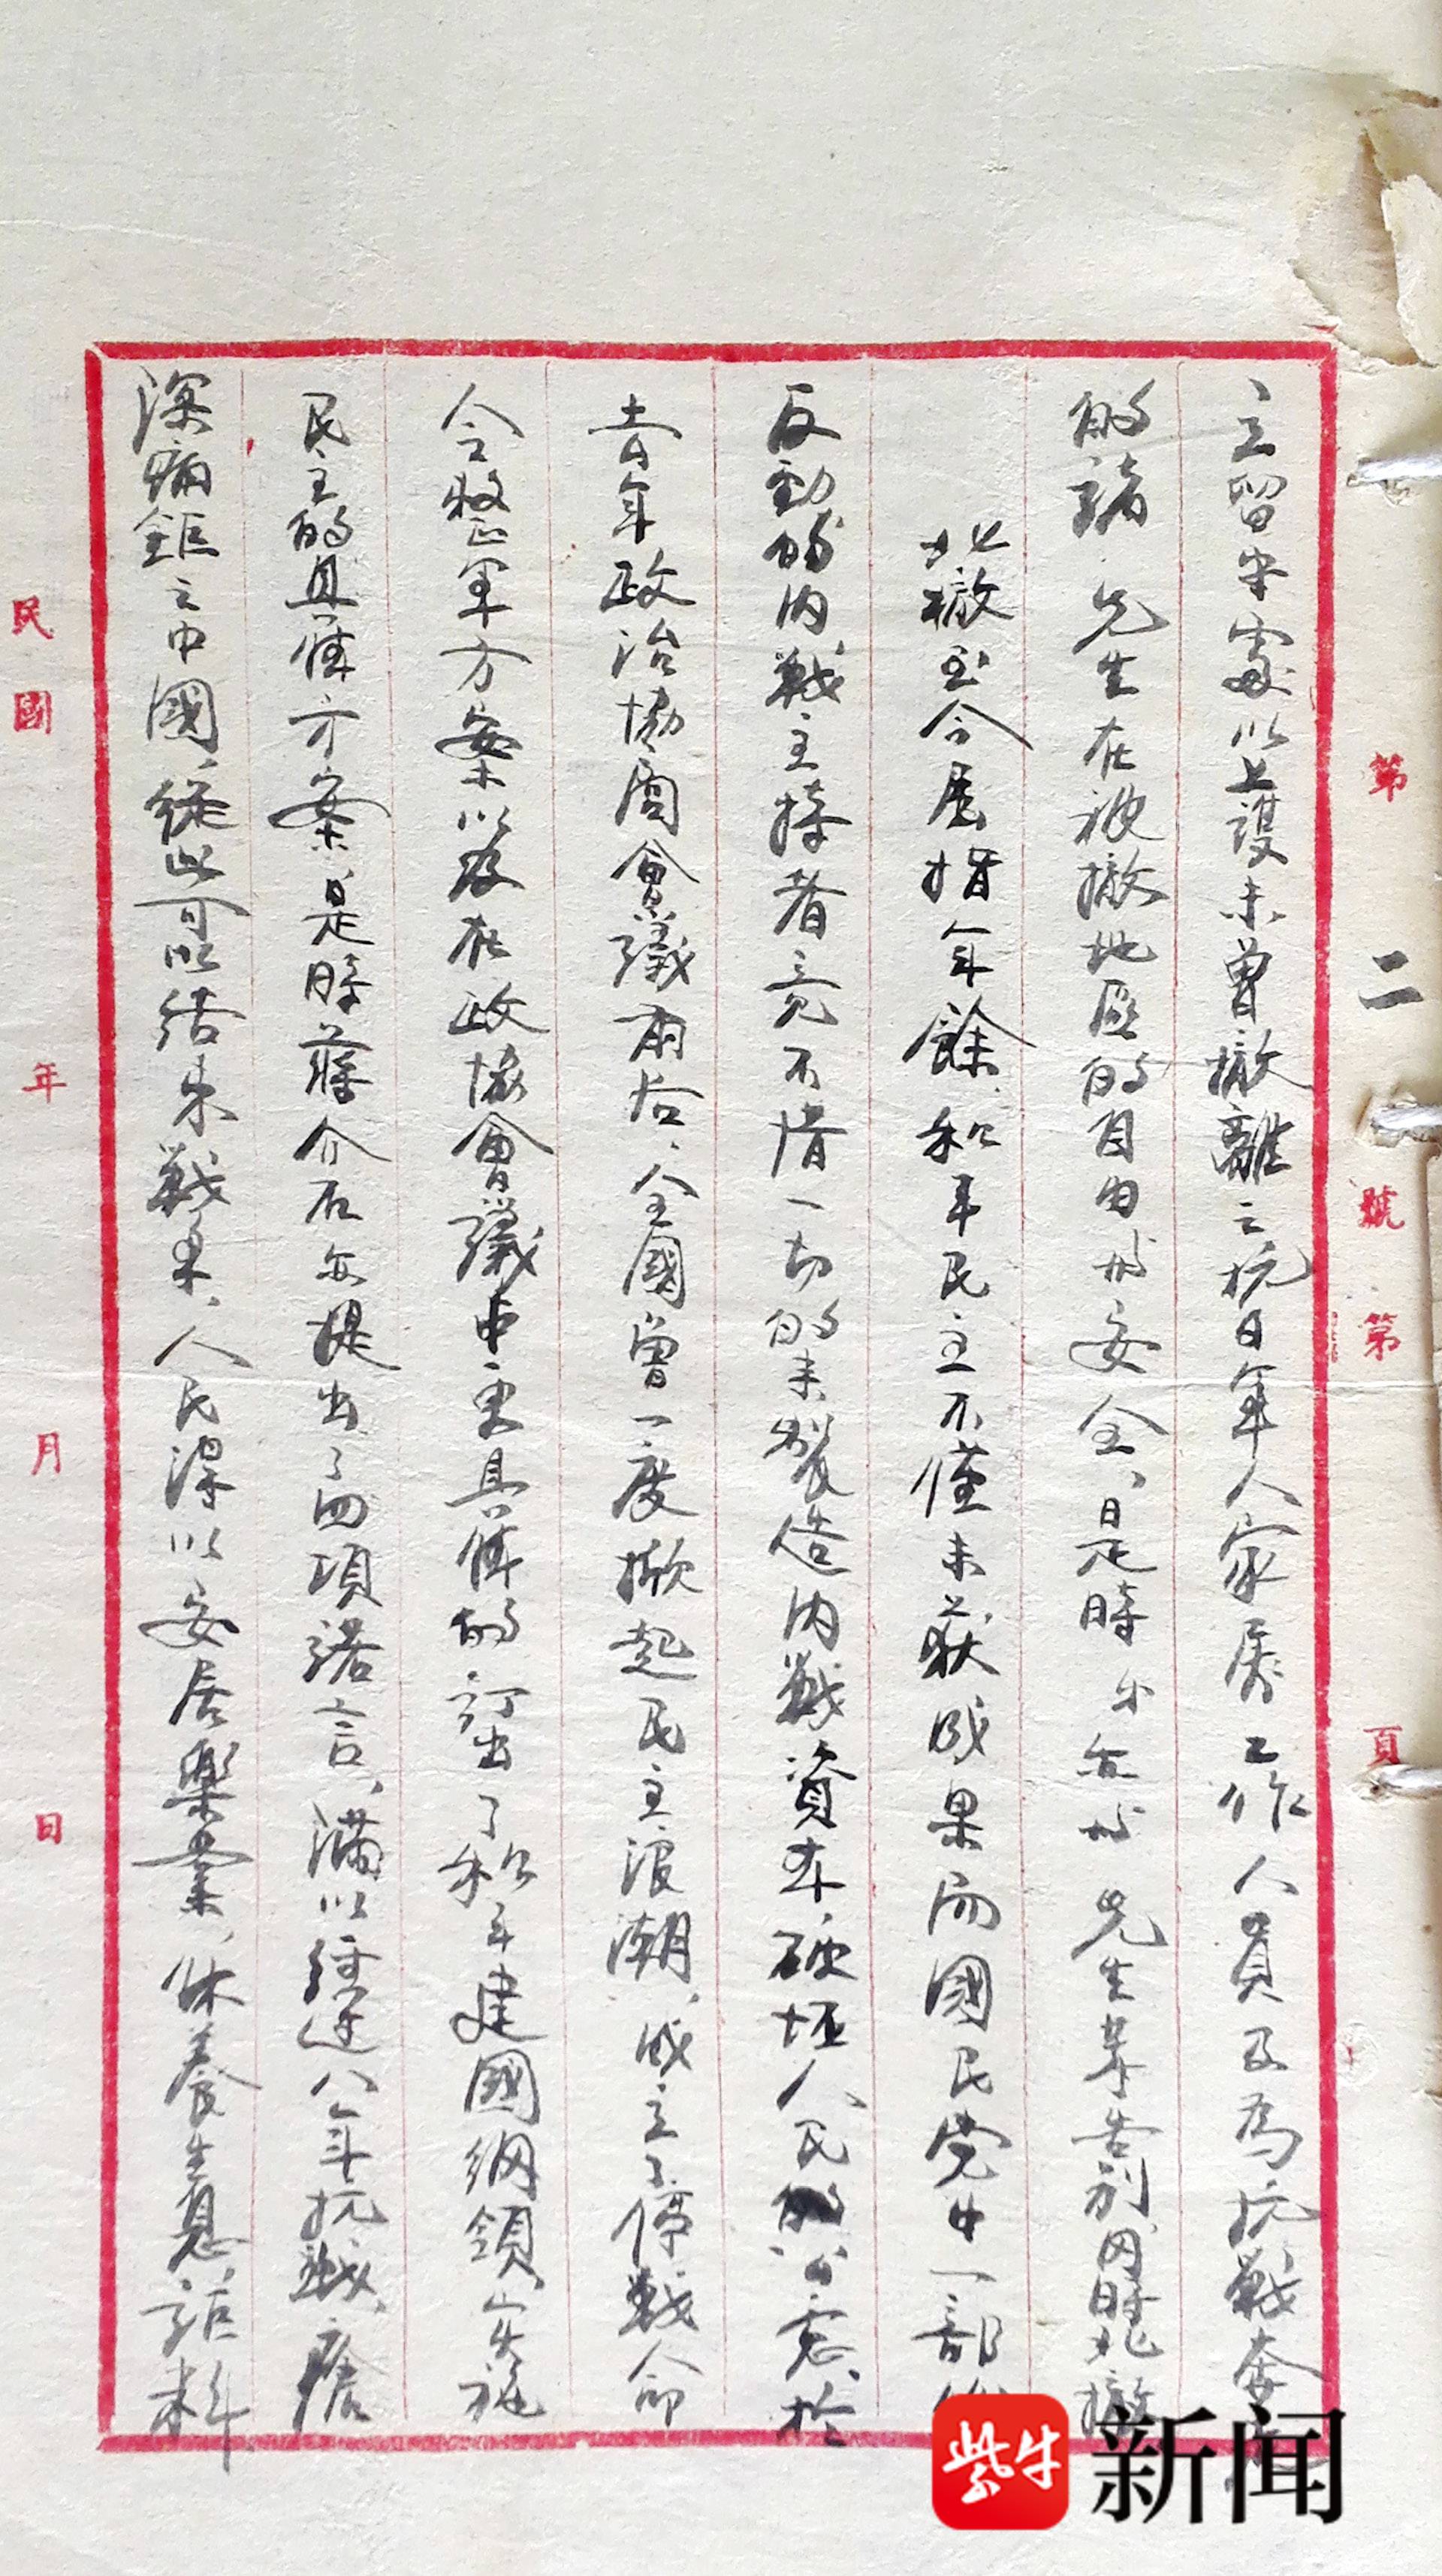 立留守處以上護未曾撤離之抗日軍人家屬工作人員及為抗戰奔
的諸 先生在被撤地區的自由安全、是時亦 先生等告別、同時北撤
北撤至今屈指年餘、和平民主不僅未獲成果而國民党中一部
反動的内戰主持者竟不惜一切的来製造内戰資本破壞人民的公意、於
去年政治協商會議前后、全國曾一度掀起民主浪潮、成立了停戰命
令整軍方案以及在政協會議中更具體的訂出了和平建國綱領、实施
民主的具體方案是時蔣介石亦提出了四項諾言、滿以經過八年抗戰、瘡
深痛鉅之中國、從此可以结朿戰争、人民得以安居樂業、休養生息、詎料
第 二 號 第 頁
民國 年 月 日
紫牛
新闻